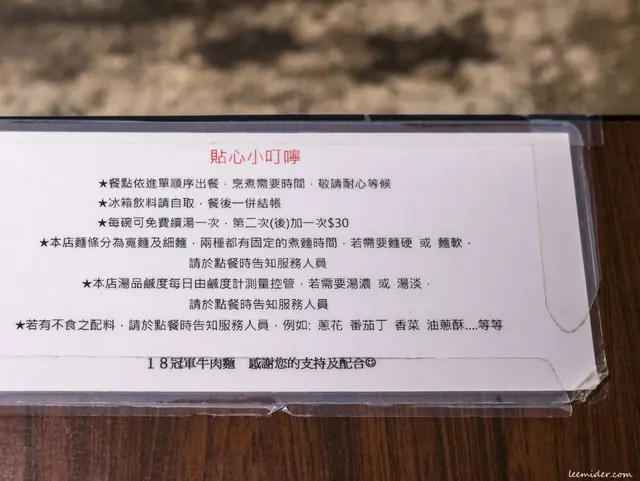 貼心小叮嚀
★餐點依進單順序出餐，烹煮需要時間，敬請耐心等候
★冰箱飲料請自取，餐後一併結帳
★每碗可免費續湯一次，第二次(後)加一次$30
★本店麵條分為寬麵及細麵，兩種都有固定的煮麵時間，若需要麵硬 或 麵軟，
請於點餐時告知服務人員
★本店湯品鹹度每日由鹹度計測量控管，若需要湯濃 或 湯淡，
請於點餐時告知服務人員
★若有不食之配料，請於點餐時告知服務人員，例如: 蔥花 番茄丁 香菜 油蔥酥....等等
１８冠軍牛肉麵　感謝您的支持及配合☺
leemider.com